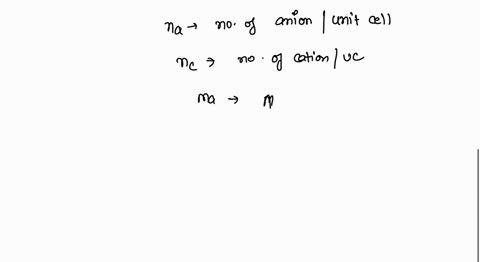 na → no. of anion / unit cell
nc → no. of cation / uc
ma → M